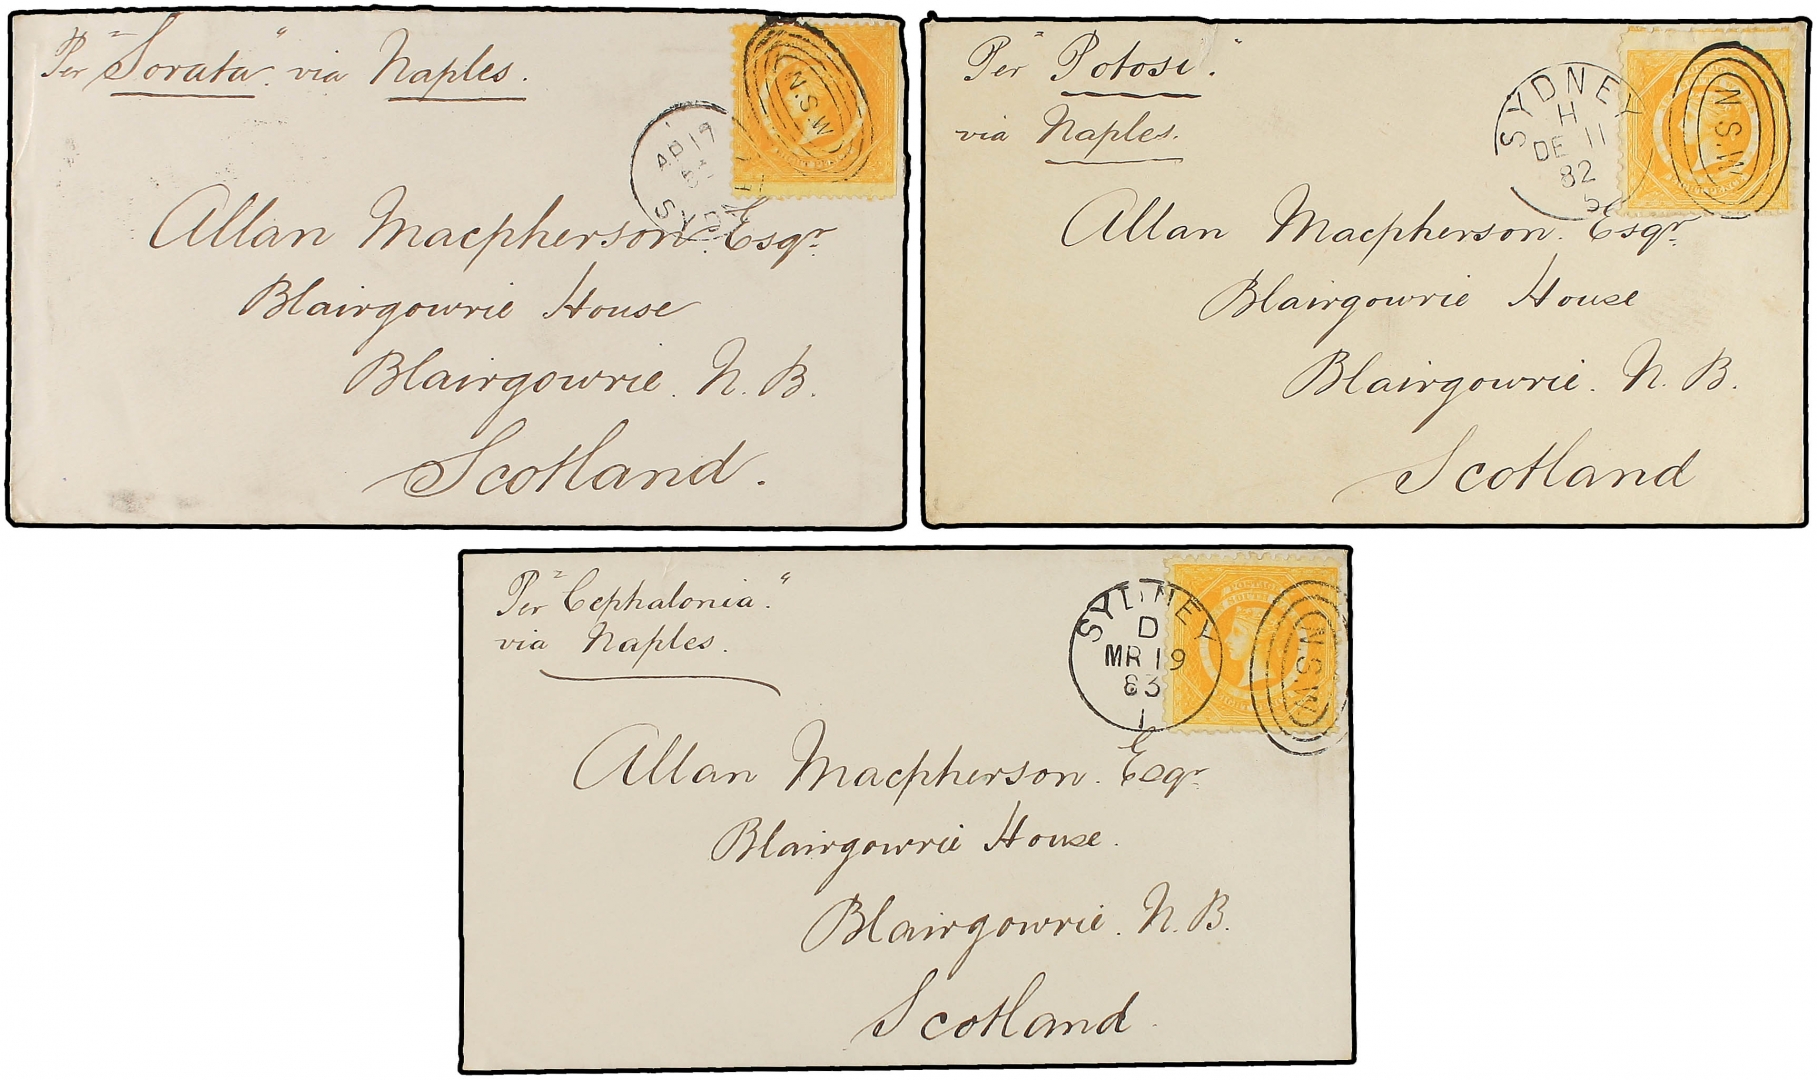 Per "Sorata" via Naples.
N.S.W
AP 19
SYDNEY
Allan Macpherson Esqr
Blairgowrie House
Blairgowrie. N. B.
Scotland.
Per "Potosi"
via Naples.
SYDNEY
H
DE 11
82
5
N.S.W
Allan Macpherson. Esqr.
Blairgowrie House
Blairgowrie. N. B.
Scotland
Per "Cephalonia"
via Naples.
SYDNEY
D
MR 19
83
1
POSTAGE
N.S.W
Allan Macpherson. Esqr
Blairgowrie House.
Blairgowrie. N. B.
Scotland.